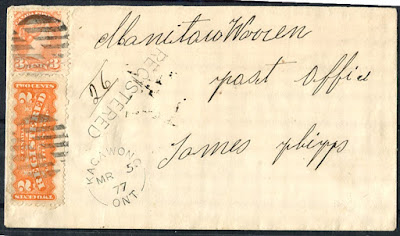 ManitawWooen
post office
James phipps
26
REGISTERED
KAGAWONG
MR 5
77
ONT
3 CENTS 3
TWO CENTS
2 REGISTERED 2
TWO CENTS